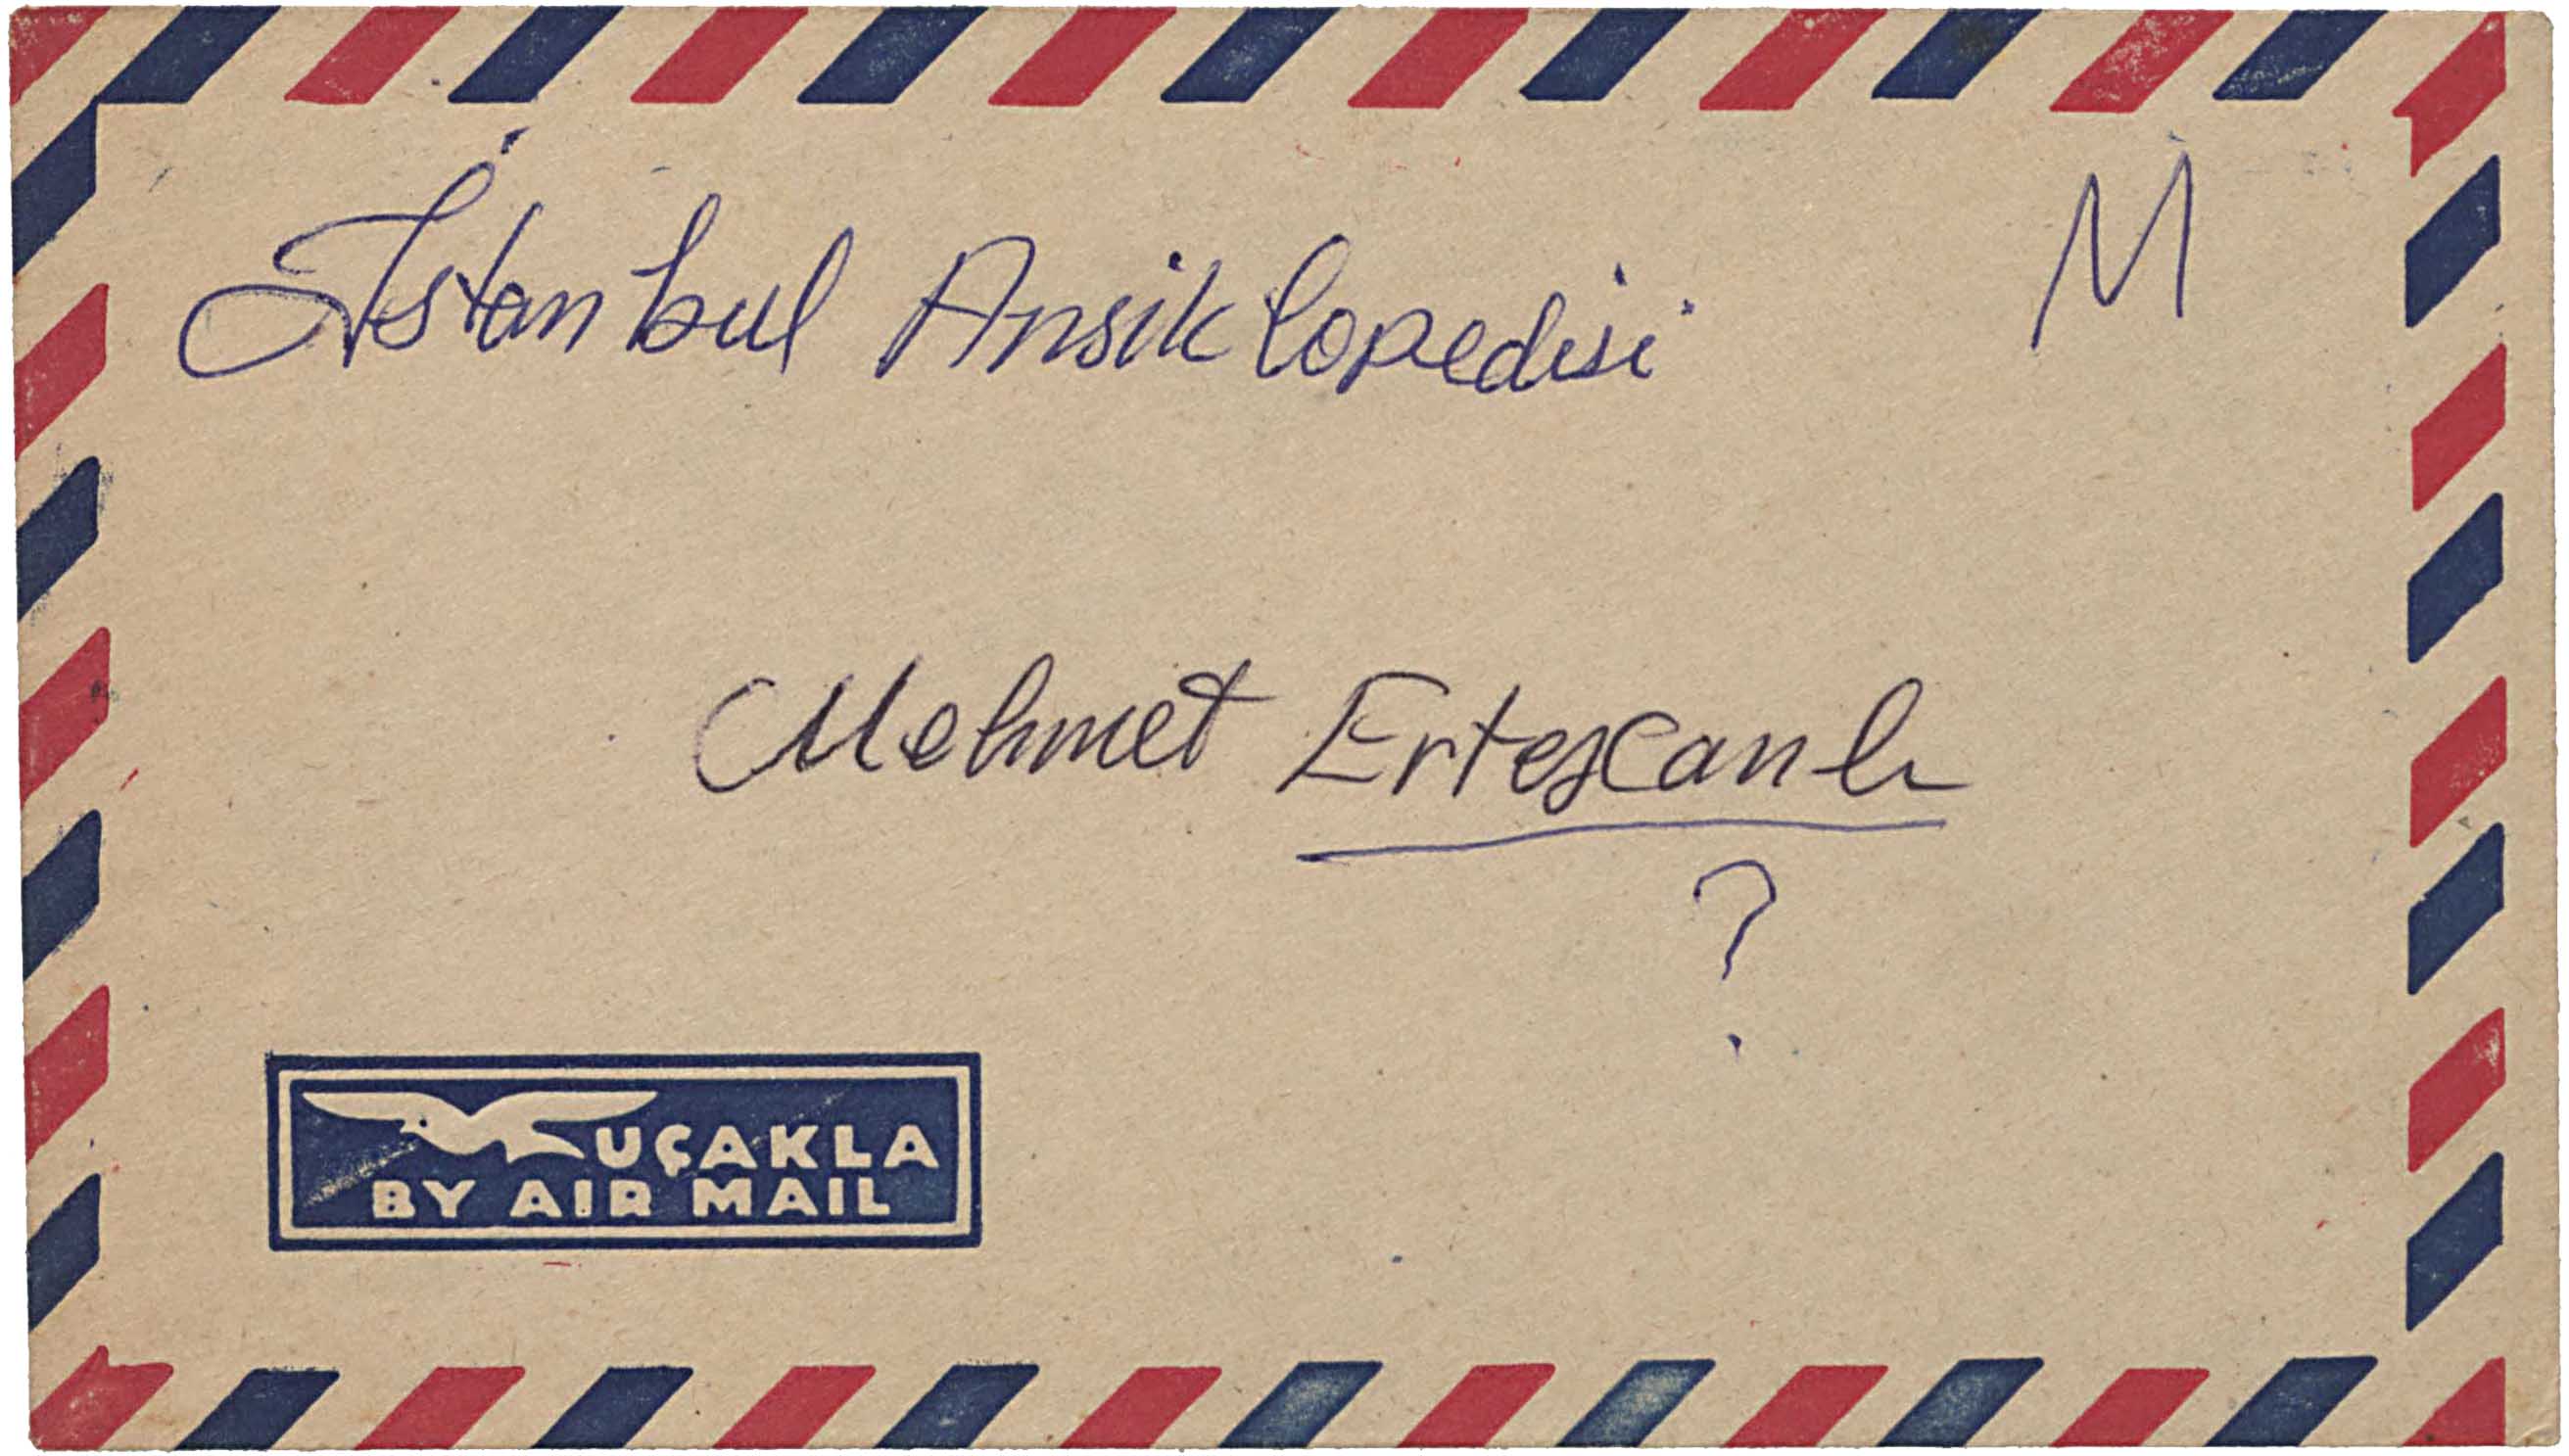 İstanbul Ansiklopedisi
M
Mehmet Ertezcanlı
?
UÇAKLA
BY AIR MAIL